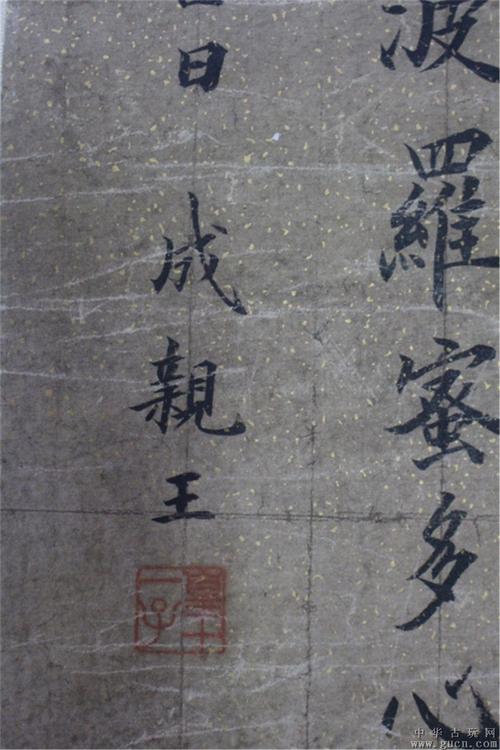 波羅蜜多心
日
成親王
皇十一子
中华古玩网
www.gucn.com